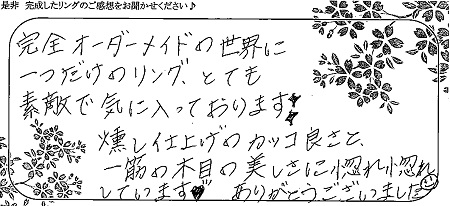 是非 完成したリングのご感想をお聞かせください♪
完全オーダーメイドの世界に
一つだけのリング、とても
素敵で気に入っております
燻し仕上げのカッコ良さと、
一筋の木目の美しさに惚れ惚れ
しています ありがとうございました